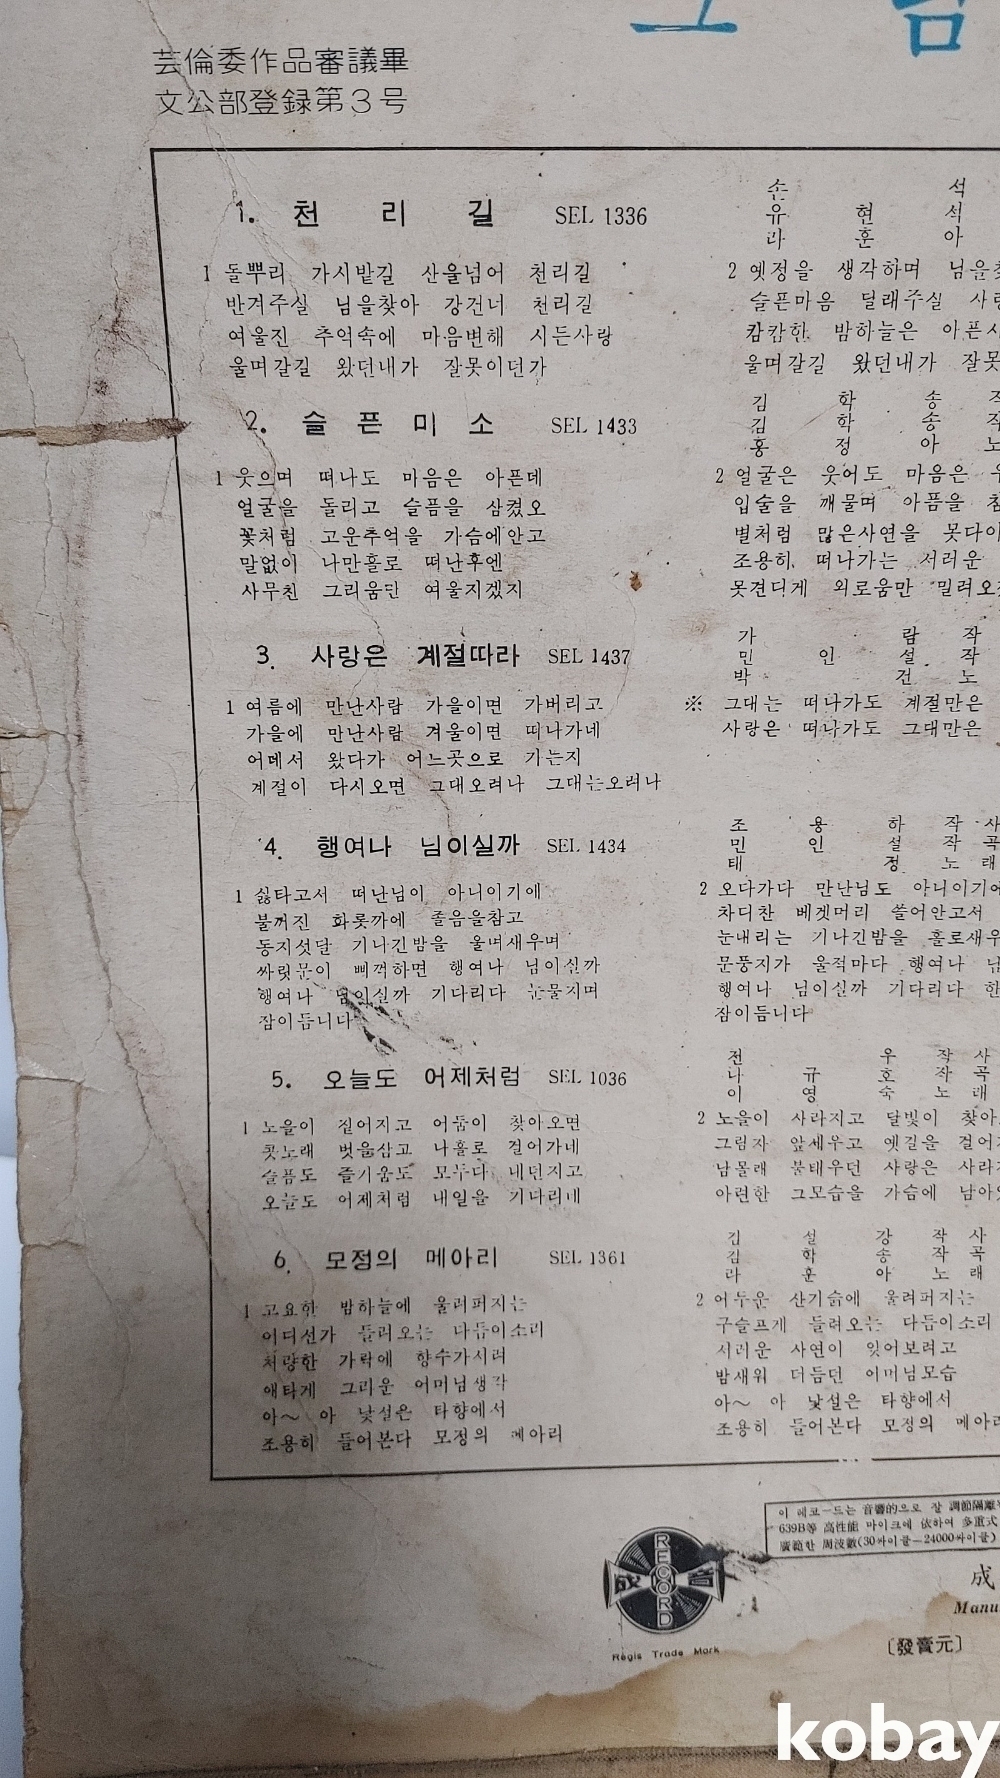 芸倫委作品審議畢
文公部登録第3号
1. 천 리 길 SEL 1336
손 석
유 현 석
라 훈 아
1 돌뿌리 가시밭길 산을넘어 천리길
반겨주실 님을찾아 강건너 천리길
여울진 추억속에 마음변해 시든사랑
울며갈길 왔던내가 잘못이던가
2 옛정을 생각하며 님을찾
슬픈마음 달래주실 사랑
캄캄한 밤하늘은 아픈사
울며갈길 왔던내가 잘못
2. 슬 픈 미 소 SEL 1433
김 학 송 작
김 학 송 작
홍 정 아 노
1 웃으며 떠나도 마음은 아픈데
얼굴을 돌리고 슬픔을 삼켰오
꽃처럼 고운추억을 가슴에안고
말없이 나만홀로 떠난후엔
사무친 그리움만 여울지겠지
2 얼굴은 웃어도 마음은
입술을 깨물며 아픔을 참
별처럼 많은사연을 못다이
조용히 떠나가는 서러운
못견디게 외로움만 밀려오
3. 사랑은 계절따라 SEL 1437
가 람 작
민 인 설 작
박 건 노
1 여름에 만난사람 가을이면 가버리고
가을에 만난사람 겨울이면 떠나가네
어데서 왔다가 어느곳으로 가는지
계절이 다시오면 그대오려나 그대는오려나
※ 그대는 떠나가도 계절만은
사랑은 떠나가도 그대만은
4. 행여나 님이실까 SEL 1434
조 용 하 작 사
민 인 설 작 곡
태 정 노 래
1 싫타고서 떠난님이 아니이기에
불꺼진 화롯까에 졸음을참고
동지섯달 기나긴밤을 울며새우며
싸릿문이 삐꺽하면 행여나 님이실까
행여나 님이실까 기다리다 눈물지며
잠이듭니다
2 오다가다 만난님도 아니이기에
차디찬 베겟머리 쓸어안고서
눈내리는 기나긴밤을 홀로새우
문풍지가 울적마다 행여나 님
행여나 님이실까 기다리다 한
잠이듭니다
5. 오늘도 어제처럼 SEL 1036
전 우 작 사
나 규 호 작 곡
이 영 숙 노 래
1 노을이 짙어지고 어둠이 찾아오면
콧노래 벗을삼고 나홀로 걸어가네
슬픔도 즐거움도 모두다 내던지고
오늘도 어제처럼 내일을 기다리네
2 노을이 사라지고 달빛이 찾아
그림자 앞세우고 옛길을 걸어
남몰래 불태우던 사랑은 사라
아련한 그모습을 가슴에 남아
6. 모정의 메아리 SEL 1361
김 설 강 작 사
김 학 송 작 곡
라 훈 아 노 래
1 고요한 밤하늘에 울려퍼지는
어디선가 들려오는 다듬이소리
처량한 가락에 향수가시려
애타게 그리운 어머님생각
아～ 아 낯설은 타향에서
조용히 들어본다 모정의 메아리
2 어두운 산기슭에 울려퍼지는
구슬프게 들려오는 다듬이소리
서러운 사연이 잊어보려고
밤새워 더듬던 어머님모습
아～ 아 낯설은 타향에서
조용히 들어본다 모정의 메아리
이 레코-드는 音響的으로 잘 調節隔離
639B等 高性能 마이크에 依하여 多重式
廣範한 周波數(30싸이클—24000싸이클)
成音
RECORD
Regis Trade Mark
成
Manu
〔發賣元〕
kobay